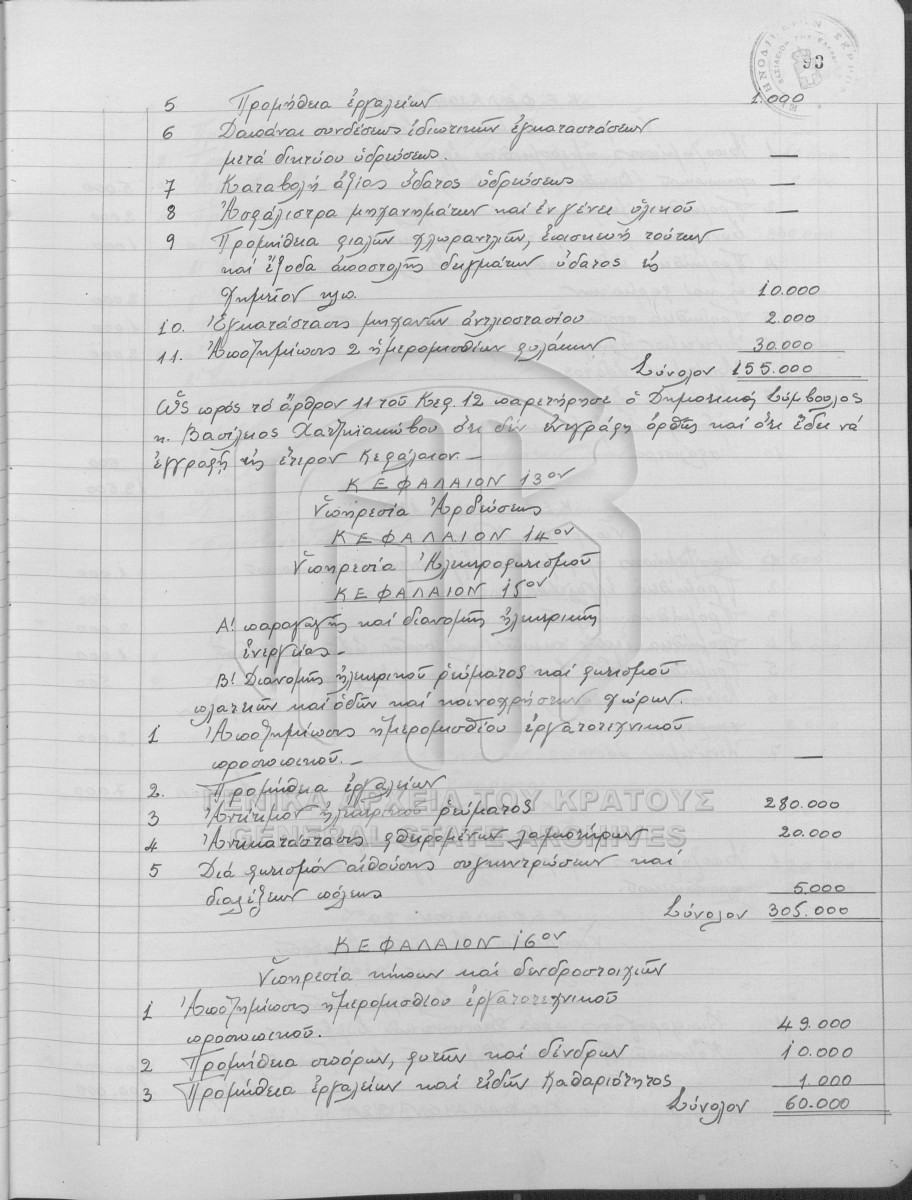 93
5 Προμήθεια ἐργαλείων 1.000
6 Δαπάναι συνδέσεως ἰδιωτικῶν ἐγκαταστάσεων
μετά δικτύου ὑδρεύσεως. —
7 Καταβολή ἀξίας ὕδατος ὑδρεύσεως —
8 Ἀσφάλιστρα μηχανημάτων καί ἐν γένει ὑλικοῦ —
9 Προμήθεια φιαλῶν χλωραντλιῶν, ἐπισκευή τούτων
καί ἔξοδα ἀποστολῆς δειγμάτων ὕδατος εἰς
Χημεῖον κλπ. 10.000
10. Ἐγκατάστασις μηχανῶν ἀντλιοστασίου 2.000
11. Ἀποζημίωσις 2 ἡμερομισθίων φυλάκων 30.000
Σύνολον 155.000
Ὡς πρός τό ἄρθρον 11 τοῦ Κεφ. 12 παρετήρησε ὁ Δημοτικός Σύμβουλος
κ. Βασίλειος Χατζηιακώβου ὅτι δέν ἐνεγράφη ὀρθῶς καί ὅτι ἔδει νά
ἐγγραφῇ εἰς ἕτερον Κεφάλαιον.—
ΚΕΦΑΛΑΙΟΝ 13ον
Ὑπηρεσία Ἀρδεύσεως
ΚΕΦΑΛΑΙΟΝ 14ον
Ὑπηρεσία Ἠλεκτροφωτισμοῦ
ΚΕΦΑΛΑΙΟΝ 15ον
Α! παραγωγῆς καί διανομῆς ἠλεκτρικῆς
ἐνεργείας.—
Β! Διανομῆς ἠλεκτρικοῦ ῥεύματος καί φωτισμοῦ
πλατειῶν καί ὁδῶν καί κοινοχρήστων χώρων.
1 Ἀποζημίωσις ἡμερομισθίου ἐργατοτεχνικοῦ
προσωπικοῦ.— —
2. Προμήθεια ἐργαλείων
3 Ἀντίτιμον ἠλεκτρικοῦ ῥεύματος 280.000
4 Ἀντικατάστασις φθειρομένων λαμπτήρων 20.000
5 Διά φωτισμόν αἰθούσης συγκεντρώσεων καί
διαλέξεων πόλεως 5.000
Σύνολον 305.000
ΚΕΦΑΛΑΙΟΝ 16ον
Ὑπηρεσία κήπων καί δενδροστοιχιῶν
1 Ἀποζημίωσις ἡμερομισθίου ἐργατοτεχνικοῦ
προσωπικοῦ. 49.000
2 Προμήθεια σπόρων, φυτῶν καί δένδρων 10.000
3 Προμήθεια ἐργαλείων καί εἰδῶν Καθαριότητος 1.000
Σύνολον 60.000
ΓΕΝΙΚΑ ΑΡΧΕΙΑ ΤΟΥ ΚΡΑΤΟΥΣ
GENERAL STATE ARCHIVES